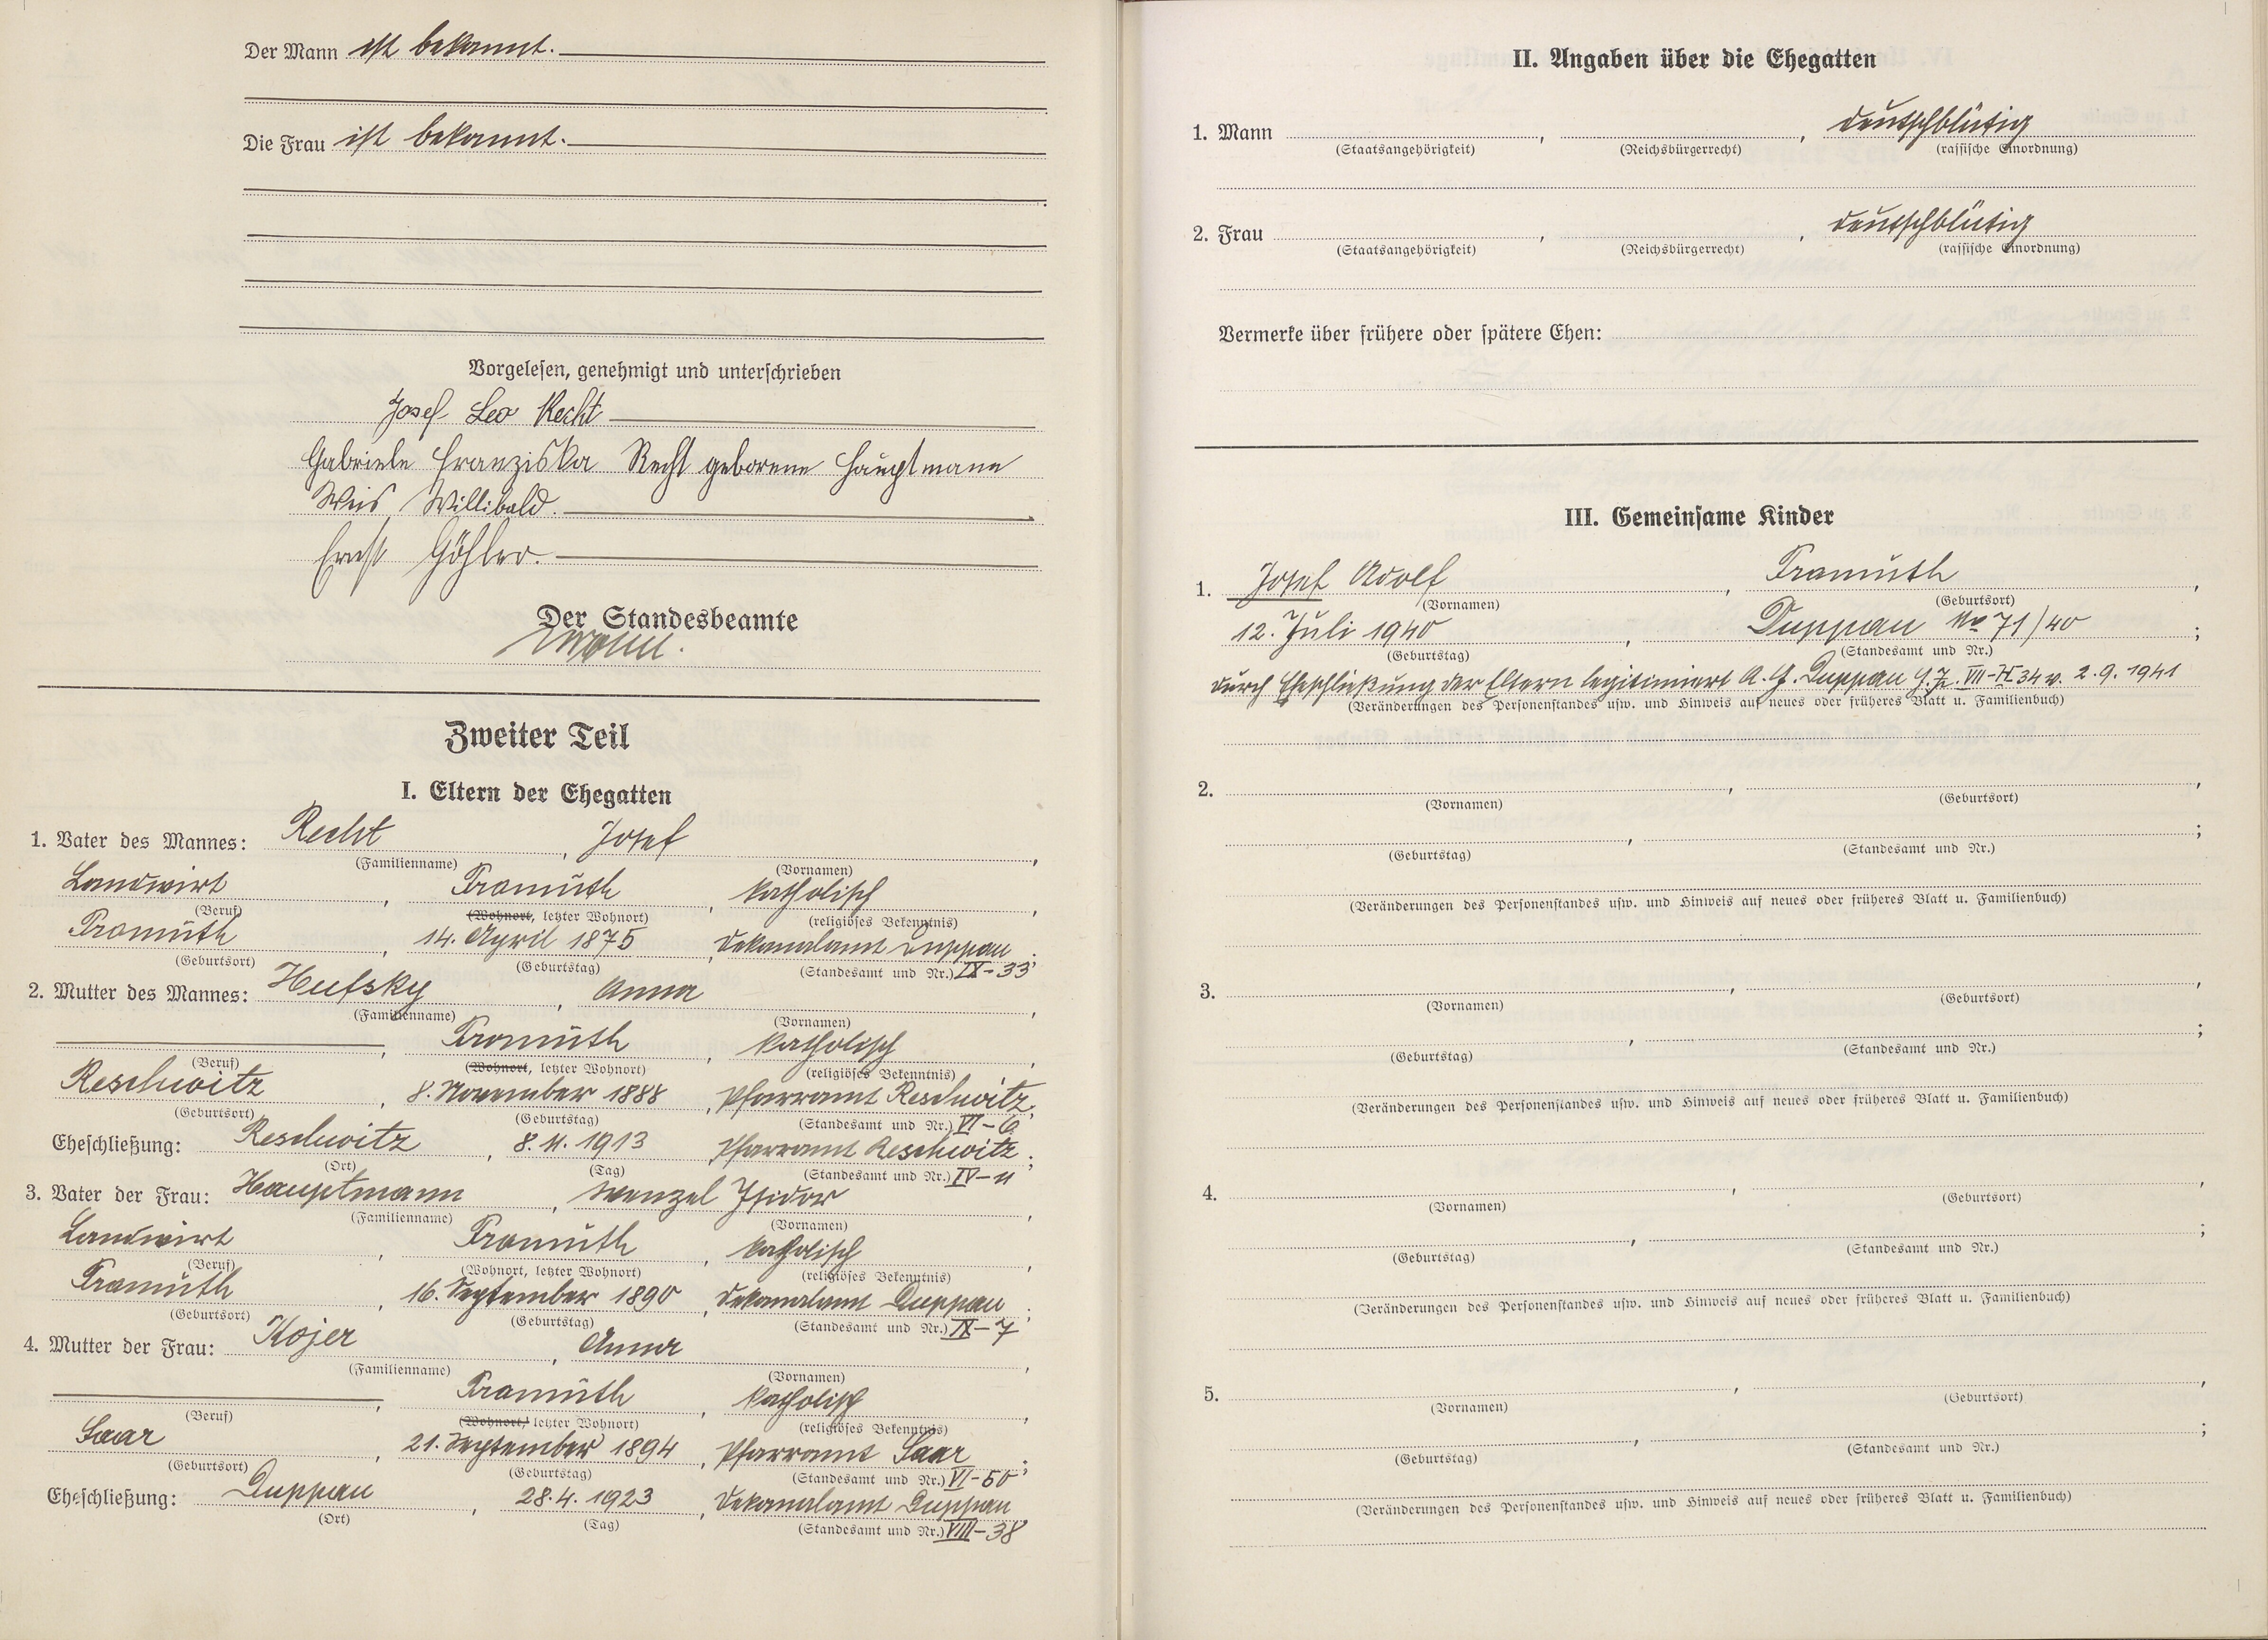 Der Mann ist bekannt.
Die Frau ist bekannt.
Vorgelesen, genehmigt und unterschrieben
Josef Leo Recht
Gabriele Franziska Recht geborene Hauptmann
Weis Willibald.
Ernst Göhler.
Der Standesbeamte
Zweiter Teil
I. Eltern der Ehegatten
1. Vater des Mannes: Recht, Josef,
(Familienname) (Vornamen)
Landwirt, Tramuth, katholisch,
(Beruf) (Wohnort, letzter Wohnort) (religiöses Bekenntnis)
Tramuth, 14. April 1875, Dekanalamt Duppau;
(Geburtsort) (Geburtstag) (Standesamt und Nr.) IX-33
2. Mutter des Mannes: Hufsky, Anna,
(Familienname) (Vornamen)
, Tramuth, katholisch,
(Beruf) (Wohnort, letzter Wohnort) (religiöses Bekenntnis)
Reschwitz, 8. November 1888, Pfarramt Reschwitz;
(Geburtsort) (Geburtstag) (Standesamt und Nr.) VI-6
Eheschließung: Reschwitz, 8. 4. 1913 Pfarramt Reschwitz;
(Ort) (Tag) (Standesamt und Nr.) IV-4
3. Vater der Frau: Hauptmann, Wenzel Isidor,
(Familienname) (Vornamen)
Landwirt, Tramuth, katholisch,
(Beruf) (Wohnort, letzter Wohnort) (religiöses Bekenntnis)
Tramuth, 16. September 1890, Dekanalamt Duppau;
(Geburtsort) (Geburtstag) (Standesamt und Nr.) IX-7
4. Mutter der Frau: Kojer, Anna,
(Familienname) (Vornamen)
, Tramuth, katholisch,
(Beruf) (Wohnort, letzter Wohnort) (religiöses Bekenntnis)
Saar, 21. September 1894, Pfarramt Saar;
(Geburtsort) (Geburtstag) (Standesamt und Nr.) VI-50
Eheschließung: Duppau, 28. 4. 1923, Dekanalamt Duppau
(Ort) (Tag) (Standesamt und Nr.) VIII-38
II. Angaben über die Ehegatten
1. Mann , , deutschblütig
(Staatsangehörigkeit) (Reichsbürgerrecht) (rassische Einordnung)
2. Frau , , deutschblütig
(Staatsangehörigkeit) (Reichsbürgerrecht) (rassische Einordnung)
Vermerke über frühere oder spätere Ehen:
III. Gemeinsame Kinder
1. Josef Adolf, Tramuth,
(Vornamen) (Geburtsort)
12. Juli 1940, Duppau No 71/40;
(Geburtstag) (Standesamt und Nr.)
durch Eheschließung der Eltern legitimiert A. G. Duppau VII-H 34 v. 2. 9. 1941
(Veränderungen des Personenstandes usw. und Hinweis auf neues oder früheres Blatt u. Familienbuch)
2. , ,
(Vornamen) (Geburtsort)
, ;
(Geburtstag) (Standesamt und Nr.)
(Veränderungen des Personenstandes usw. und Hinweis auf neues oder früheres Blatt u. Familienbuch)
3. , ,
(Vornamen) (Geburtsort)
, ;
(Geburtstag) (Standesamt und Nr.)
(Veränderungen des Personenstandes usw. und Hinweis auf neues oder früheres Blatt u. Familienbuch)
4. , ,
(Vornamen) (Geburtsort)
, ;
(Geburtstag) (Standesamt und Nr.)
(Veränderungen des Personenstandes usw. und Hinweis auf neues oder früheres Blatt u. Familienbuch)
5. , ,
(Vornamen) (Geburtsort)
, ;
(Geburtstag) (Standesamt und Nr.)
(Veränderungen des Personenstandes usw. und Hinweis auf neues oder früheres Blatt u. Familienbuch)